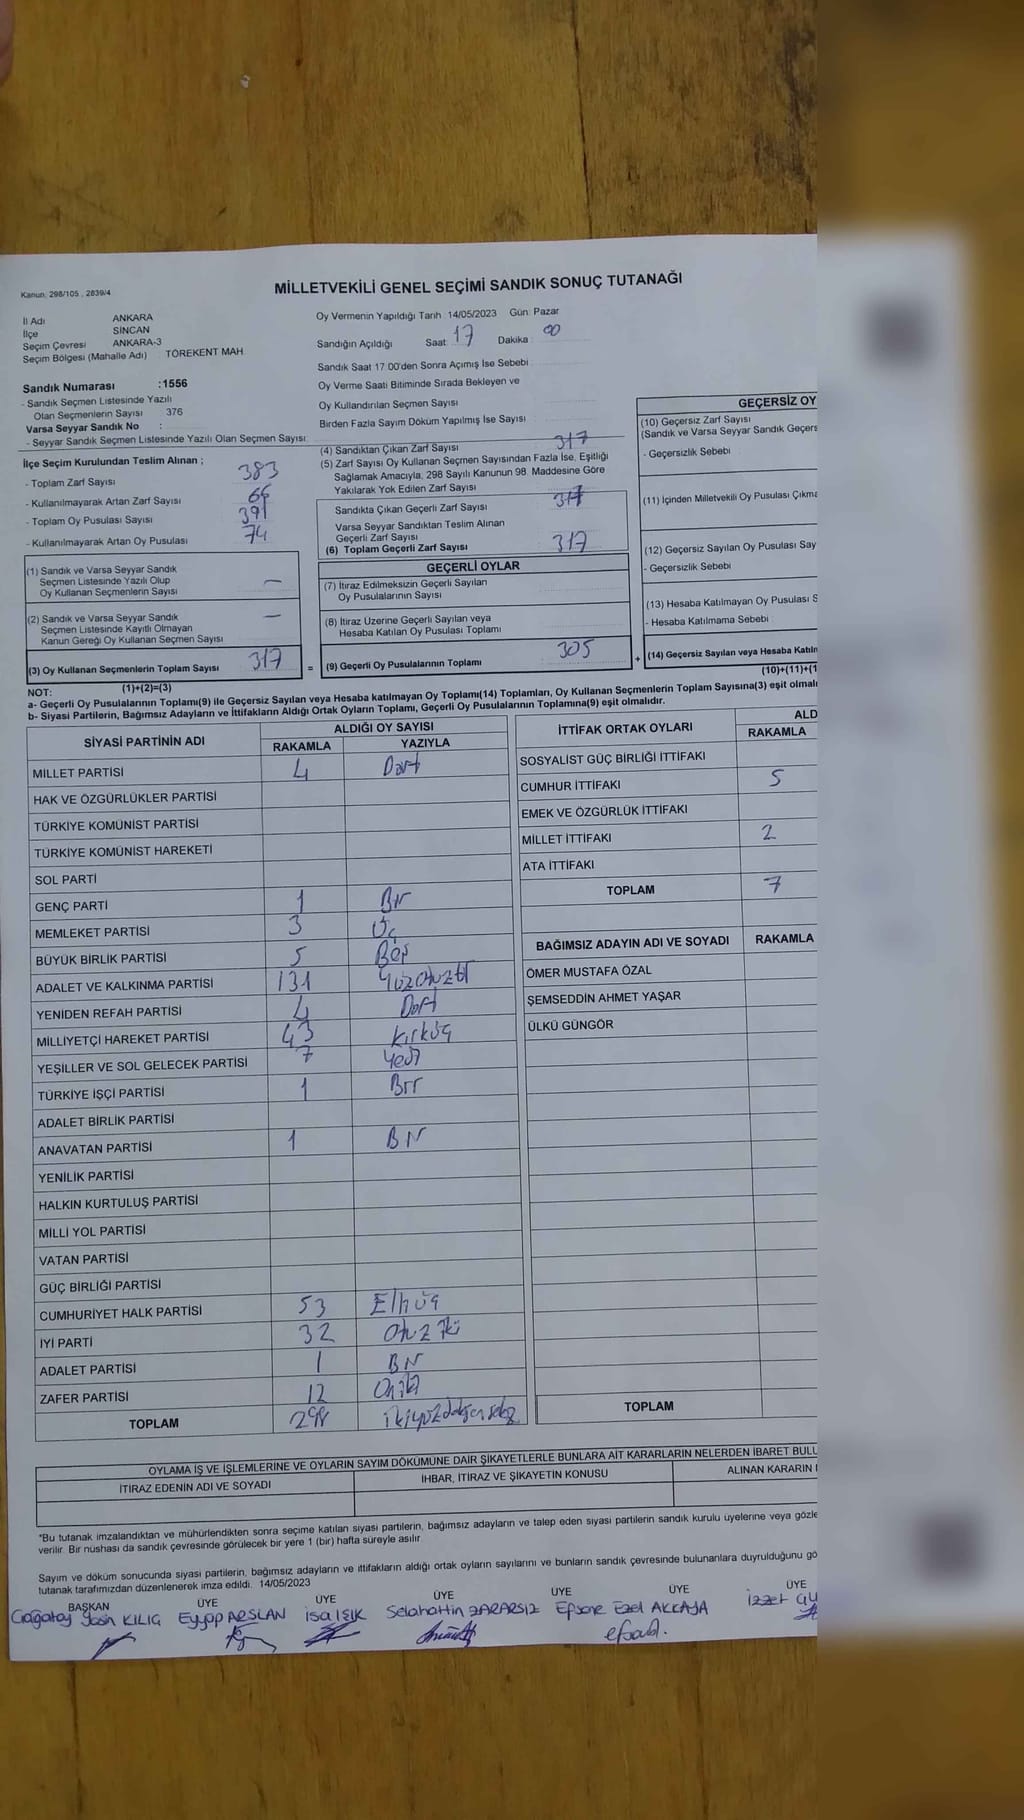 Kanun: 298/105 , 2839/4
MİLLETVEKİLİ GENEL SEÇİMİ SANDIK SONUÇ TUTANAĞI
İl Adı ANKARA
İlçe SİNCAN
Seçim Çevresi ANKARA-3
Seçim Bölgesi (Mahalle Adı) TÖREKENT MAH.
Sandık Numarası :1556
- Sandık Seçmen Listesinde Yazılı
Olan Seçmenlerin Sayısı 376
Varsa Seyyar Sandık No :
- Seyyar Sandık Seçmen Listesinde Yazılı Olan Seçmen Sayısı:
İlçe Seçim Kurulundan Teslim Alınan ;
- Toplam Zarf Sayısı 383
- Kullanılmayarak Artan Zarf Sayısı 66
- Toplam Oy Pusulası Sayısı 391
- Kullanılmayarak Artan Oy Pusulası 74
(1) Sandık ve Varsa Seyyar Sandık
Seçmen Listesinde Yazılı Olup
Oy Kullanan Seçmenlerin Sayısı —
(2) Sandık ve Varsa Seyyar Sandık
Seçmen Listesinde Kayıtlı Olmayan
Kanun Gereği Oy Kullanan Seçmen Sayısı —
(3) Oy Kullanan Seçmenlerin Toplam Sayısı 317 =
(1)+(2)=(3)
Oy Vermenin Yapıldığı Tarih :14/05/2023 Gün: Pazar
Sandığın Açıldığı Saat: 17 Dakika : 00
Sandık Saat 17:00'den Sonra Açımış İse Sebebi
Oy Verme Saati Bitiminde Sırada Bekleyen ve
Oy Kullandırılan Seçmen Sayısı
Birden Fazla Sayım Döküm Yapılmış İse Sayısı
(4) Sandıktan Çıkan Zarf Sayısı 317
(5) Zarf Sayısı Oy Kullanan Seçmen Sayısından Fazla İse, Eşitliği
Sağlamak Amacıyla, 298 Sayılı Kanunun 98. Maddesine Göre
Yakılarak Yok Edilen Zarf Sayısı
Sandıkta Çıkan Geçerli Zarf Sayısı 317
Varsa Seyyar Sandıktan Teslim Alınan
Geçerli Zarf Sayısı
(6) Toplam Geçerli Zarf Sayısı 317
GEÇERLİ OYLAR
(7) İtiraz Edilmeksizin Geçerli Sayılan
Oy Pusulalarının Sayısı
(8) İtiraz Üzerine Geçerli Sayılan veya
Hesaba Katılan Oy Pusulası Toplamı
(9) Geçerli Oy Pusulalarının Toplamı 305 +
GEÇERSİZ OY
(10) Geçersiz Zarf Sayısı
(Sandık ve Varsa Seyyar Sandık Geçers
- Geçersizlik Sebebi
(11) İçinden Milletvekili Oy Pusulası Çıkma
(12) Geçersiz Sayılan Oy Pusulası Say
- Geçersizlik Sebebi
(13) Hesaba Katılmayan Oy Pusulası S
- Hesaba Katılmama Sebebi
(14) Geçersiz Sayılan veya Hesaba Katıln
(10)+(11)+(1
NOT:
a- Geçerli Oy Pusulalarının Toplamı(9) ile Geçersiz Sayılan veya Hesaba katılmayan Oy Toplamı(14) Toplamları, Oy Kullanan Seçmenlerin Toplam Sayısına(3) eşit olmalı
b- Siyasi Partilerin, Bağımsız Adayların ve İttifakların Aldığı Ortak Oyların Toplamı, Geçerli Oy Pusulalarının Toplamına(9) eşit olmalıdır.
SİYASİ PARTİNİN ADI ALDIĞI OY SAYISI
RAKAMLA YAZIYLA
MİLLET PARTİSİ 4 Dört
HAK VE ÖZGÜRLÜKLER PARTİSİ
TÜRKİYE KOMÜNİST PARTİSİ
TÜRKİYE KOMÜNİST HAREKETİ
SOL PARTİ
GENÇ PARTİ 1 Bir
MEMLEKET PARTİSİ 3 Üç
BÜYÜK BİRLİK PARTİSİ 5 Beş
ADALET VE KALKINMA PARTİSİ 131 Yüzotuzbir
YENİDEN REFAH PARTİSİ 4 Dört
MİLLİYETÇİ HAREKET PARTİSİ 43 Kırküç
YEŞİLLER VE SOL GELECEK PARTİSİ 7 Yedi
TÜRKİYE İŞÇİ PARTİSİ 1 Bir
ADALET BİRLİK PARTİSİ
ANAVATAN PARTİSİ 1 Bir
YENİLİK PARTİSİ
HALKIN KURTULUŞ PARTİSİ
MİLLİ YOL PARTİSİ
VATAN PARTİSİ
GÜÇ BİRLİĞİ PARTİSİ
CUMHURİYET HALK PARTİSİ 53 Elliüç
İYİ PARTİ 32 Otuz İki
ADALET PARTİSİ 1 Bir
ZAFER PARTİSİ 12 Oniki
TOPLAM 298 ikiyüzdoksansekiz
İTTİFAK ORTAK OYLARI ALD
RAKAMLA
SOSYALİST GÜÇ BİRLİĞİ İTTİFAKI
CUMHUR İTTİFAKI 5
EMEK VE ÖZGÜRLÜK İTTİFAKI
MİLLET İTTİFAKI 2
ATA İTTİFAKI
TOPLAM 7
BAĞIMSIZ ADAYIN ADI VE SOYADI RAKAMLA
ÖMER MUSTAFA ÖZAL
ŞEMSEDDİN AHMET YAŞAR
ÜLKÜ GÜNGÖR
TOPLAM
OYLAMA İŞ VE İŞLEMLERİNE VE OYLARIN SAYIM DÖKÜMÜNE DAİR ŞİKAYETLERLE BUNLARA AİT KARARLARIN NELERDEN İBARET BULU
İTİRAZ EDENİN ADI VE SOYADI İHBAR, İTİRAZ VE ŞİKAYETİN KONUSU ALINAN KARARIN
*Bu tutanak imzalandıktan ve mühürlendikten sonra seçime katılan siyasi partilerin, bağımsız adayların ve talep eden siyasi partilerin sandık kurulu üyelerine veya gözle
verilir. Bir nüshası da sandık çevresinde görülecek bir yere 1 (bir) hafta süreyle asılır.
Sayım ve döküm sonucunda siyasi partilerin, bağımsız adayların ve ittifakların aldığı ortak oyların sayılarını ve bunların sandık çevresinde bulunanlara duyrulduğunu gö
tutanak tarafımızdan düzenlenerek imza edildi. 14/05/2023
BAŞKAN ÜYE ÜYE ÜYE ÜYE ÜYE ÜYE
Çağatay Yasin KILIÇ Eyyüp ARSLAN İsa IŞIK Selahattin ZARARSIZ Efsane Ezel AKKAJA İzzet